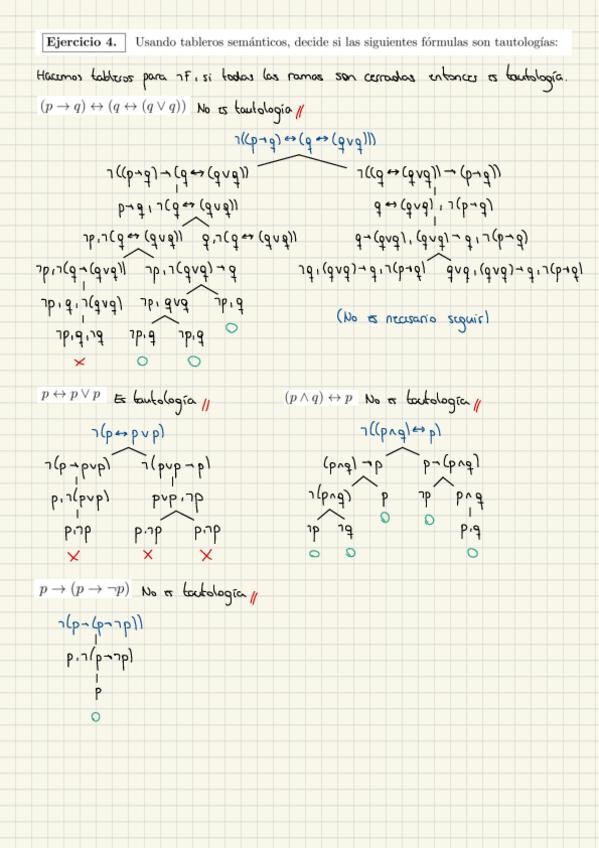 Ejercicio 4. Usando tableros semánticos, decide si las siguientes fórmulas son tautologías:
Hacemos tableros para ¬F, si todas las ramas son cerradas entonces es tautología.
(p → q) ↔ (q ↔ (q ∨ q)) No es tautología //
¬((p→q)↔(q↔(q∨q)))
¬((p→q)→(q↔(q∨q)) ¬((q↔(q∨q))→(p→q))
p→q, ¬(q↔(q∨q)) q↔(q∨q), ¬(p→q)
¬p, ¬(q↔(q∨q)) q, ¬(q↔(q∨q)) q→(q∨q), (q∨q)→q, ¬(p→q)
¬p, ¬(q→(q∨q)) ¬p, ¬(q∨q)→q ¬q, (q∨q)→q, ¬(p→q) q∨q, (q∨q)→q, ¬(p→q)
¬p, q, ¬(q∨q) ¬p, q∨q ¬p, q (No es necesario seguir)
¬p, q, ¬q ¬p, q ¬p, q O
× O O
p ↔ p ∨ p Es tautología // (p ∧ q) ↔ p No es tautología //
¬(p↔p∨p) ¬((p∧q)↔p)
¬(p→p∨p) ¬(p∨p→p) (p∧q)→p p→(p∧q)
p, ¬(p∨p) p∨p, ¬p ¬(p∧q) p ¬p p∧q
p, ¬p p, ¬p p, ¬p ¬p ¬q O O p, q
× × × O O O
p → (p → ¬p) No es tautología //
¬(p→(p→¬p))
p, ¬(p→¬p)
p
O